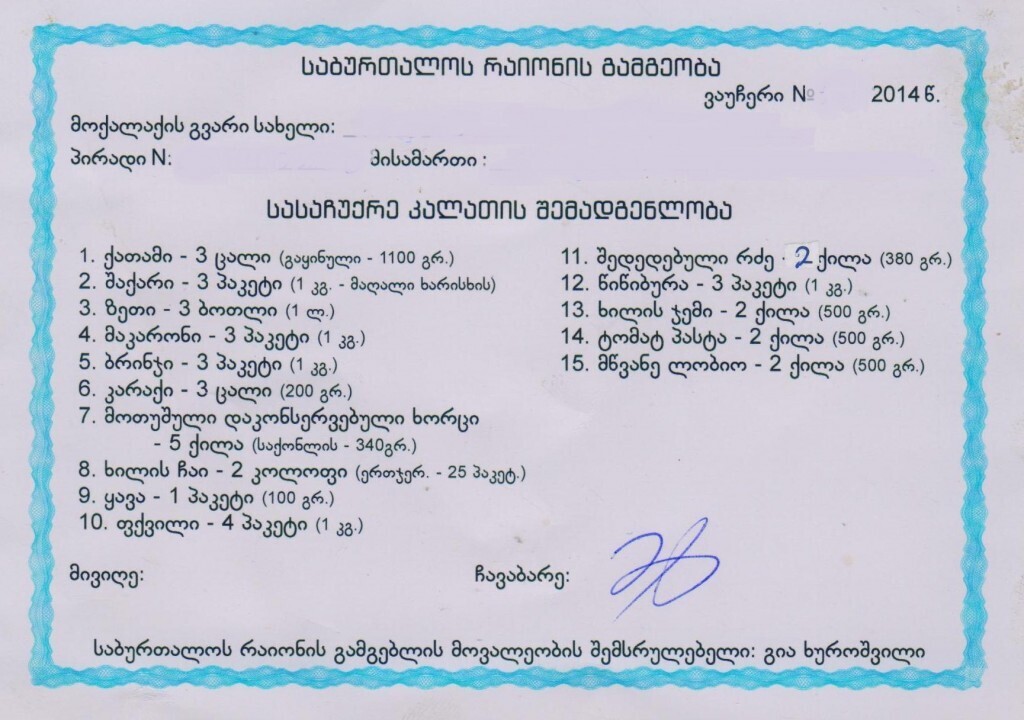 საბურთალოს რაიონის გამგეობა
ვაუჩერი № 2014 წ.
მოქალაქის გვარი სახელი:
პირადი N: მისამართი :
სასაჩუქრე კალათის შემადგენლობა
1. ქათამი - 3 ცალი (გაყინული - 1100 გრ.)
2. შაქარი - 3 პაკეტი (1 კგ. - მაღალი ხარისხის)
3. ზეთი - 3 ბოთლი (1 ლ.)
4. მაკარონი - 3 პაკეტი (1 კგ.)
5. ბრინჯი - 3 პაკეტი (1 კგ.)
6. კარაქი - 3 ცალი (200 გრ.)
7. მოთუშული დაკონსერვებული ხორცი
- 5 ქილა (საქონლის - 340გრ.)
8. ხილის ჩაი - 2 კოლოფი (ერთჯერ. - 25 პაკეტ.)
9. ყავა - 1 პაკეტი (100 გრ.)
10. ფქვილი - 4 პაკეტი (1 კგ.)
11. შედედებული რძე - 2 ქილა (380 გრ.)
12. წიწიბურა - 3 პაკეტი (1 კგ.)
13. ხილის ჯემი - 2 ქილა (500 გრ.)
14. ტომატ პასტა - 2 ქილა (500 გრ.)
15. მწვანე ლობიო - 2 ქილა (500 გრ.)
მივიღე: ჩავაბარე:
საბურთალოს რაიონის გამგებლის მოვალეობის შემსრულებელი: გია ხუროშვილი